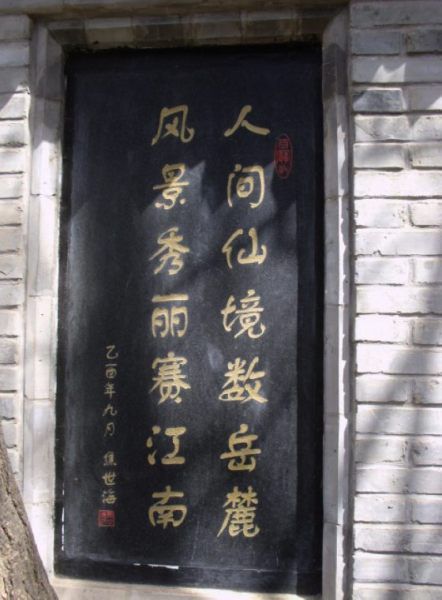 人间仙境数岳麓
风景秀丽赛江南
乙酉年九月 焦世海